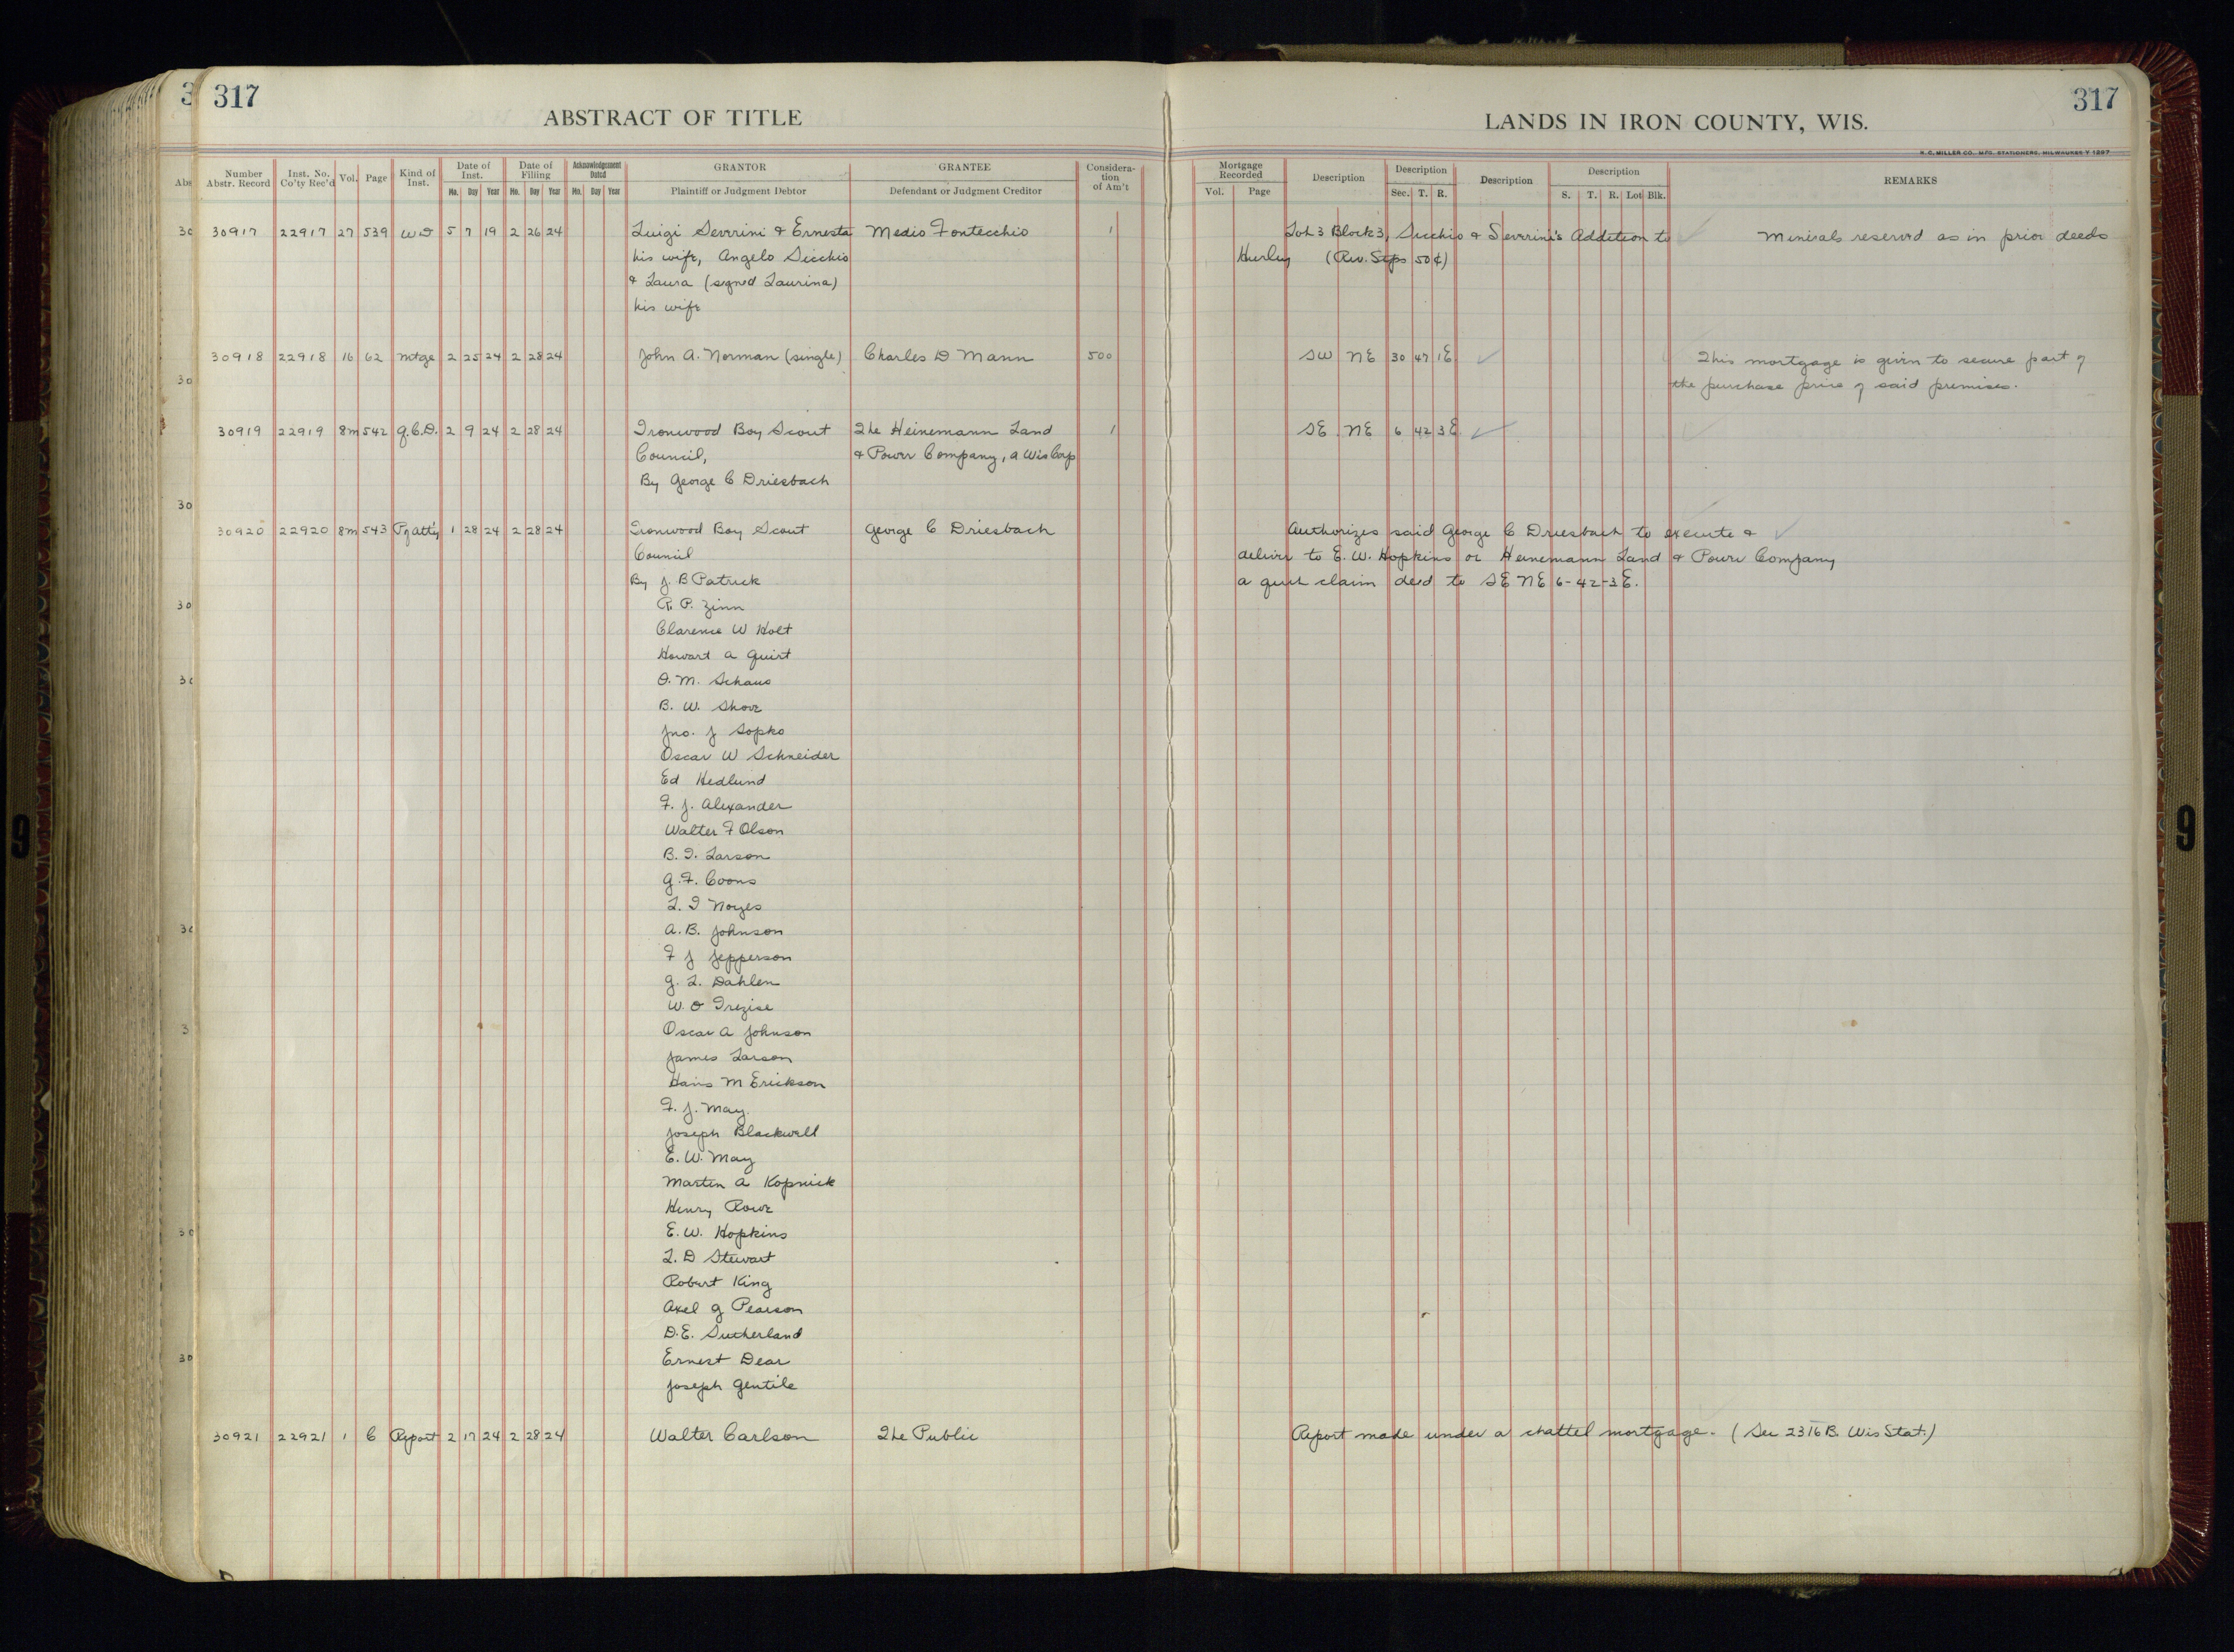 317
ABSTRACT OF TITLE
Number Abstr. Record | Inst. No. Co'ty Rec'd | Vol. | Page | Kind of Inst. | Date of Inst. Mo. Day Year | Date of Filling Mo. Day Year | Acknowledgement Dated Mo. Day Year | GRANTOR Plaintiff or Judgment Debtor | GRANTEE Defendant or Judgment Creditor | Considera-tion of Am't
30917 22917 27 539 WD 5 7 19 2 26 24 Luigi Severini & Ernesta Medio Fontecchio 1
his wife, Angelo Sicchio
& Laura (signed Laurina)
his wife
30918 22918 16 62 Mtge 2 25 24 2 28 24 John A. Norman (single) Charles D Mann 500
30919 22919 8m 542 Q.C.D. 2 9 24 2 28 24 Ironwood Boy Scout The Heinemann Land 1
Council, & Power Company, a Wis Corp
By George C Driesbach
30920 22920 8m 543 P of atty 1 28 24 2 28 24 Ironwood Boy Scout George C Driesbach
Council
By J. B Patrick
R. P. Zinn
Clarence W Holt
Howart A Quirt
O. M. Schaus
B. W. Shove
Jno. J Sopko
Oscar W Schneider
Ed Hedlund
F. J. Alexander
Walter F Olson
B. I. Larson
G. F. Coons
L. I Noyes
A. B. Johnson
F J Jepperson
G. L. Dahlen
W. O Trezise
Oscar A Johnson
James Larson
Hans M Erickson
F. J. May.
Joseph Blackwell
E. W. May
Martin A Kopnick
Henry Rowe
E. W. Hopkins
L. D Stewart
Robert King
Axel G Pearson
D. E. Sutherland
Ernest Dear
Joseph Gentile
30921 22921 1 C Report 2 17 24 2 28 24 Walter Carlson The Public
317
LANDS IN IRON COUNTY, WIS.
H. C. MILLER CO., MFG. STATIONERS, MILWAUKEE-Y 1297
Mortgage Recorded Vol. Page | Description | Description Sec. T. R. | Description | Description S. T. R. Lot Blk. | REMARKS
Lot 3 Block 3, Sicchio & Severini's Addition to Minerals reserved as in prior deeds
Hurley (Rev. Stps 50¢)
SW NE 30 47 1E This mortgage is given to secure part of
the purchase price of said premises.
SE NE 6 42 3E
Authorizes said George C Driesbach to execute &
deliver to E. W. Hopkins or Heinemann Land & Power Company
a quit claim deed to SE NE 6-42-3E.
Report made under a chattel mortgage. (Sec 2316B. Wis Stat.)
9
9